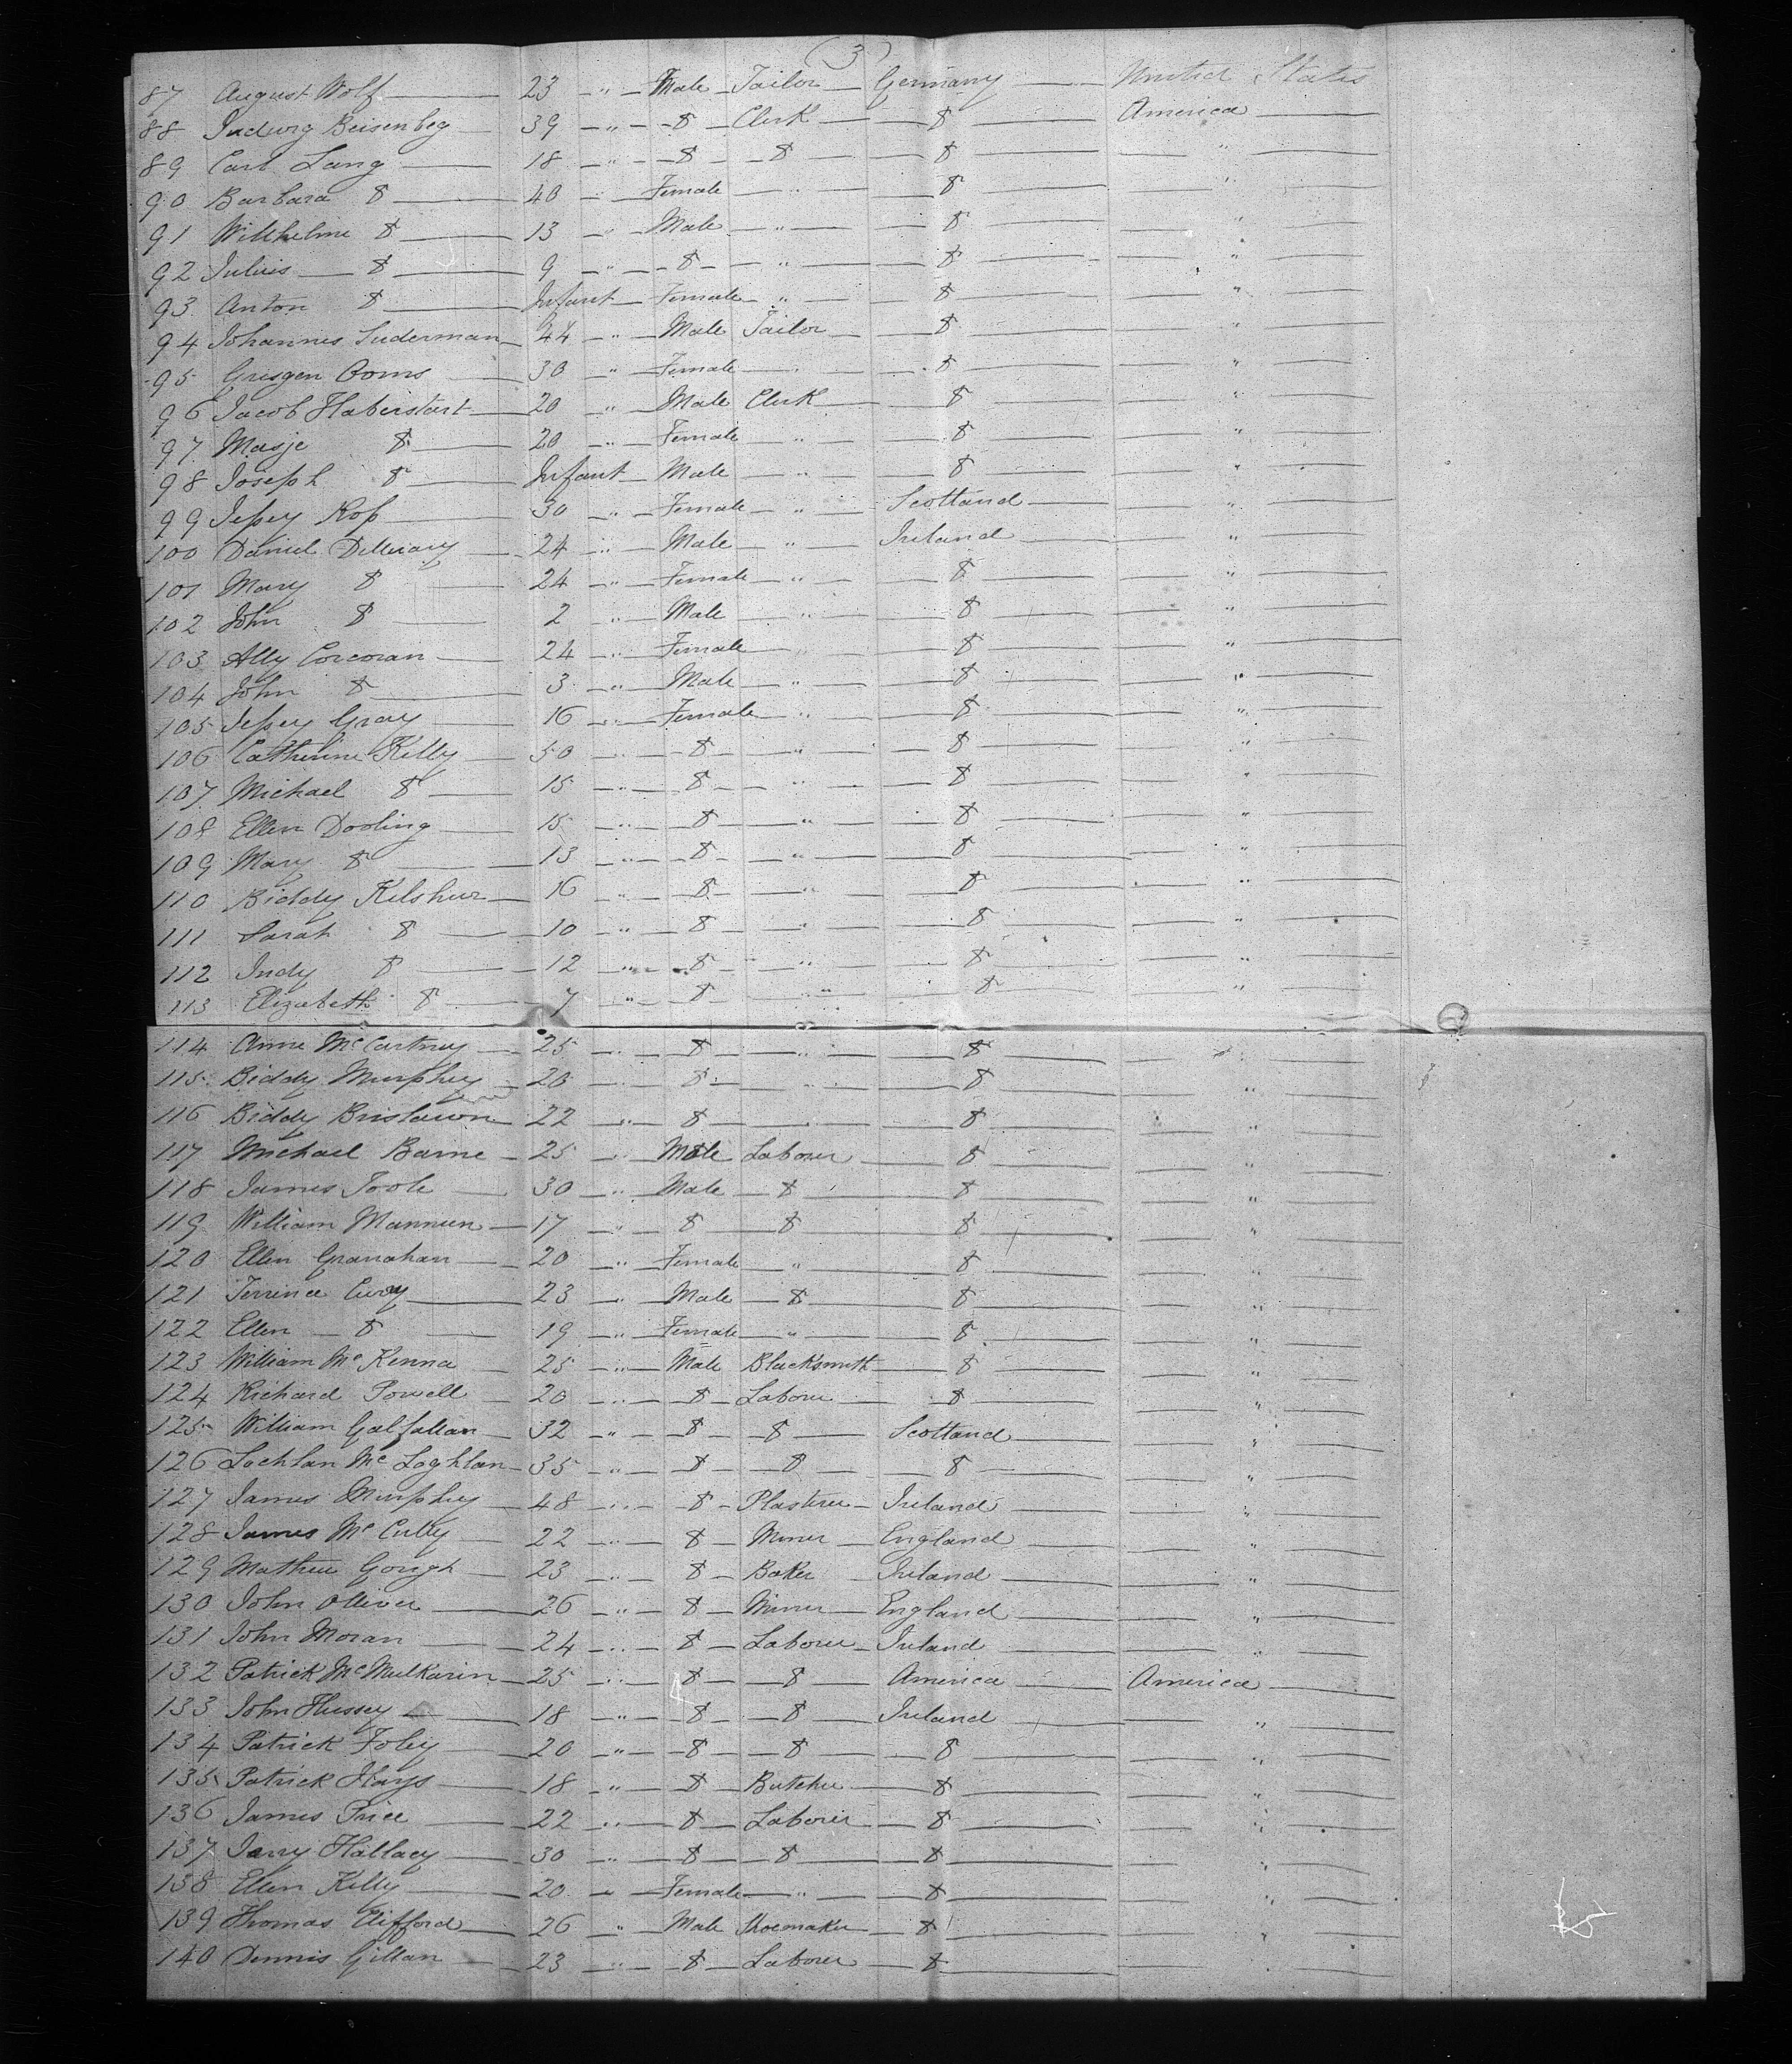 (3)
87 August Wolf 23 " Male Tailor Germany United States
88 Ludwig Beisenbeg 39 " do Clerk do America
89 Carl Lang 18 " do do do "
90 Barbara do 40 " Female " do "
91 Wilhelme do 13 " Male " do "
92 Julius do 9 " do " do "
93 Anton do Infant Female " do "
94 Johannes Suderman 44 " Male Tailor do "
95 Gresgen Ooms 30 " Female " do "
96 Jacob Haberstart 20 " Male Clerk do "
97 Masje do 20 " Female " do "
98 Joseph do Infant Male " do "
99 Jessey Ross 30 " Female " Scotland "
100 Daniel 24 " Male " Ireland "
101 Mary do 24 " Female " do "
102 John do 2 " Male " do "
103 Ally Corcoran 24 " Female " do "
104 John do 3 " Male " do "
105 Jessey Gray 16 " Female " do "
106 Catherine Kelly 50 " do " do "
107 Michael do 15 " do " do "
108 Ellen Dooling 15 " do " do "
109 Mary do 13 " do " do "
110 Biddy Kelshur 16 " do " do "
111 Sarah do 10 " do " do "
112 Judy do 12 " do " do "
113 Elizabeth do 7 " do " do "
114 Anne McCartney 25 " do " do "
115 Biddy Murphey 20 " do " do "
116 Biddy Brislawn 22 " do " do "
117 Michael Barne 25 " Male Laborer do "
118 James Toole 30 " Male do do "
119 William Mannun 17 " do do do "
120 Ellen Granahan 20 " Female " do "
121 Terrince Curry 23 " Male do do "
122 Ellen do 19 " Female " do "
123 William McKenna 25 " Male Blacksmith do "
124 Richard Powell 20 " do Laborer do "
125 William Galfallan 32 " do do Scotland "
126 Lochlan McLoghlan 35 " do do do "
127 James Murphey 48 " do Plasterer Ireland "
128 James McCully 22 " do Miner England "
129 Mathew Gough 23 " do Baker Ireland "
130 John Olliver 26 " do Miner England "
131 John Moran 24 " do Laborer Ireland "
132 Patrick McMulkarin 25 " do do America America
133 John Hussey 18 " do do Ireland "
134 Patrick Foley 20 " do do do "
135 Patrick Hays 18 " do Butcher do "
136 James Price 22 " do Laborer do "
137 Jarry Hallacy 30 " do do do "
138 Ellen Kelly 20 " Female " do "
139 Thomas Clifford 26 " Male Shoemaker do "
140 Dennis Gillan 23 " do Laborer do "